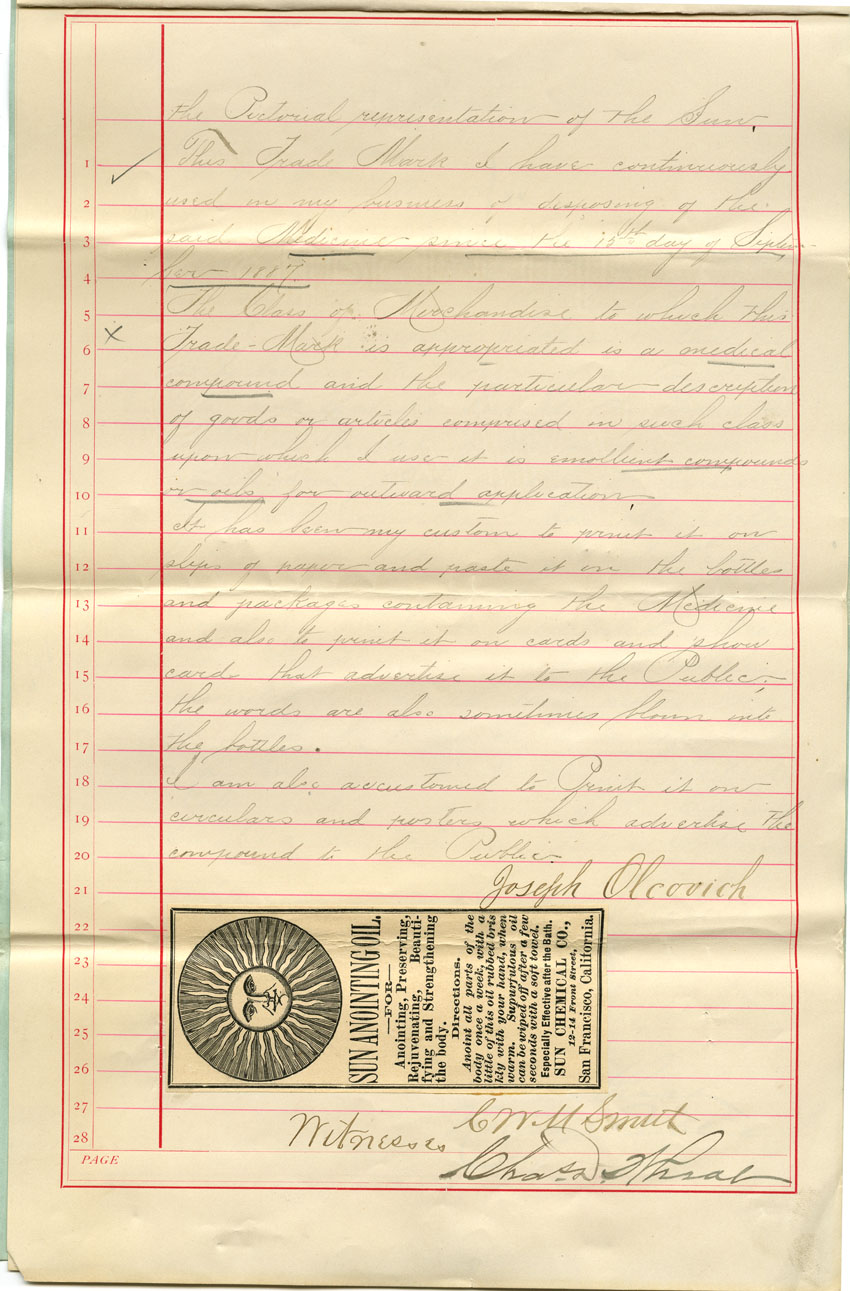 the Pictorial representation of the Sun,
1 This Trade Mark I have continuously
2 used in my business of disposing of the
3 said Medicine since the 15th day of Septem-
4 ber 1887.
5 The Class of Merchandise to which this
6 Trade-Mark is appropriated is a medical
7 compound and the particular description
8 of goods or articles comprised in such class
9 upon which I use it is emollient compounds
10 or oils for outward application
11 It has been my custom to print it on
12 slips of paper and paste it on the bottles
13 and packages containing the Medicine
14 and also to print it on cards and show
15 cards that advertise it to the Public,
16 the words are also sometimes blown into
17 the bottles.
18 I am also accustomed to Print it on
19 circulars and posters which advertise the
20 compound to the Public
21 Joseph Olcovich
22
23
24
25
26
27
28
SUN ANOINTING OIL.
—FOR—
Anointing, Preserving,
Rejuvenating, Beauti-
fying and Strengthening
the body.
Directions.
Anoint all parts of the
body once a week, with a
little of this oil rubbed bris
kly with your hand, when
warm. Supurfulous oil
can be wiped off after a few
seconds with a soft towel.
Especially Effective after the Bath.
SUN CHEMICAL CO.,
12-14 Front Street,
San Francisco, California.
Witnesses C W M Smith
Chas.
PAGE